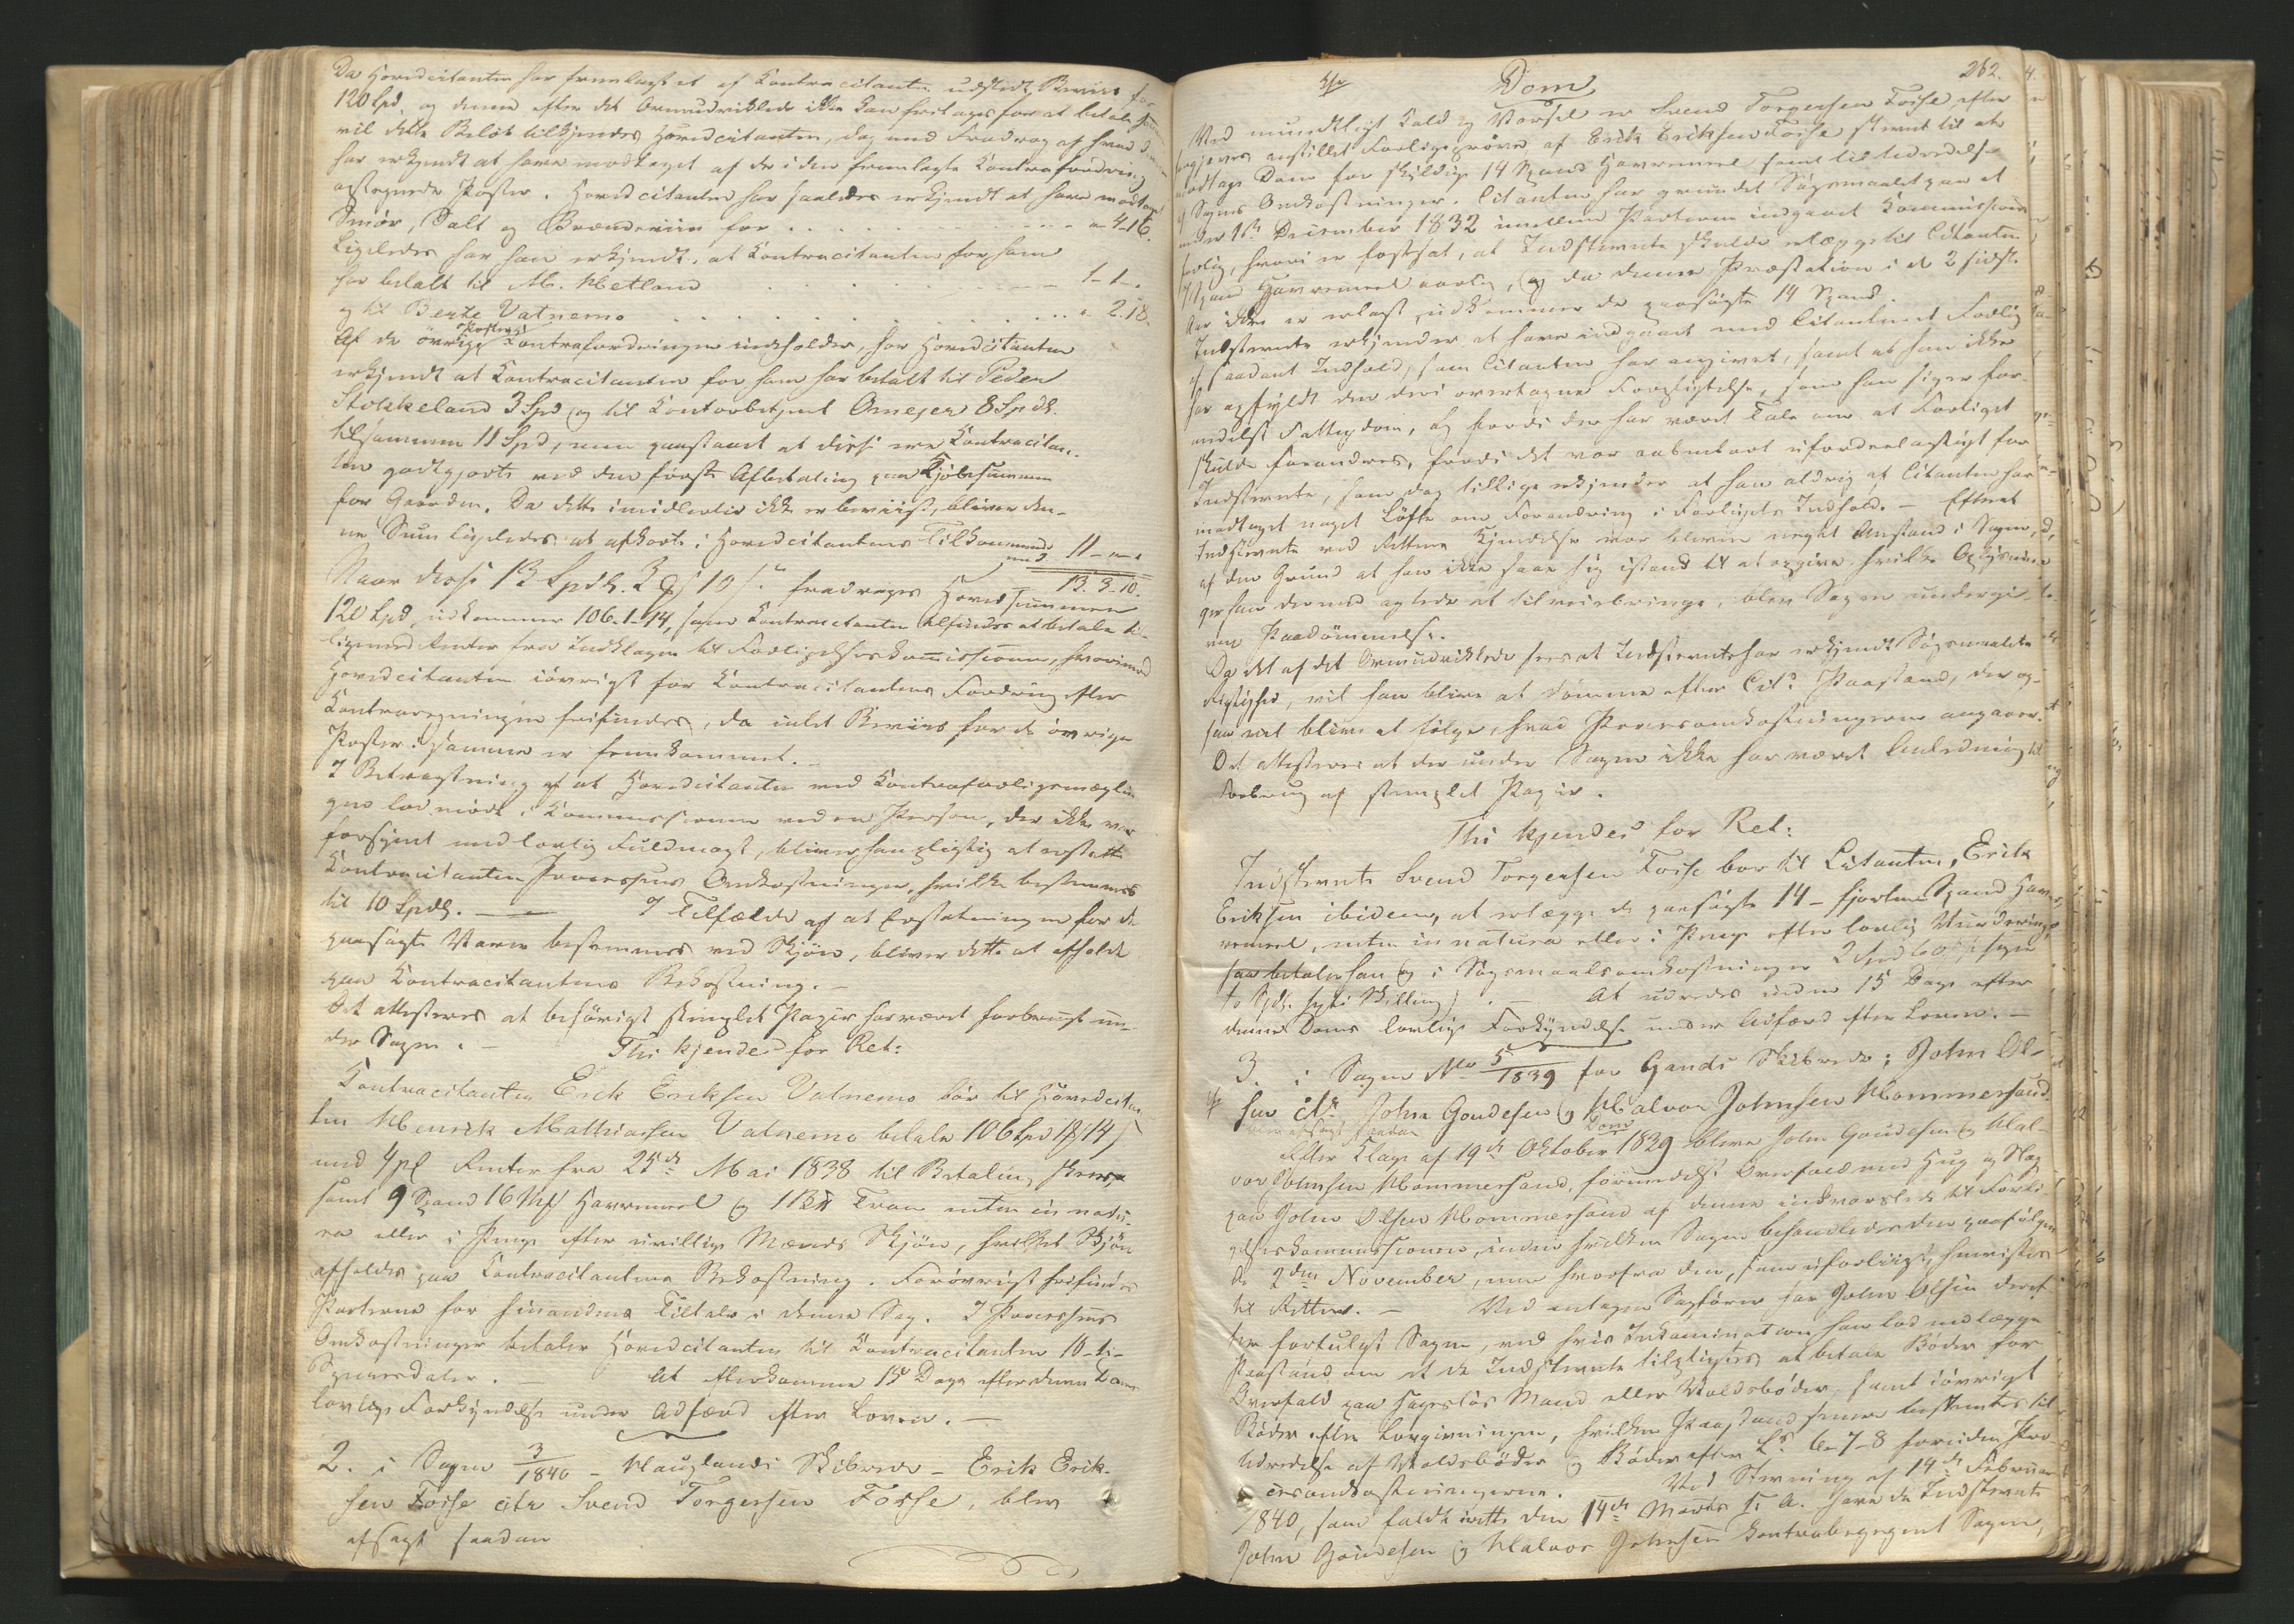 Da Hovedcitanten har fremlagt et af Contracitanten udstedt Beviis for
120 Spd. og denne efter det Ommeldte ikke kan fritages for at betale
vil dette Beløb tilkjendes Hovedcitanten, dog med Fradrag af hvad
har erkjendt at have modtaget af de i den fremlagte Contrafordring
opførte Poster. Hovedcitanten har saaledes erkjendt at have modtaget
Smør, Salt og Brændeviin for . . . . . . " 4-16.
Ligeledes har han erkjendt, at Contracitanten for ham
har betalt til M. Metland . . . . . 1-1-".
og til Berte Vatnemo . . . . . . " 2.18.
Af de øvrige Poster Contrafordringen indeholder, har Hovedcitanten
erkjendt at Contracitanten for ham har betalt til Peder
Stokkeland 3 Spd og til Contorbetjent Omejer 8 Spd.
tilsammen 11 Spd, men paastaaet at disse ere Contracitan-
ten godtgjorte ved den første Afbetaling paa Kjøbesummen
for Gaarden. Da dette imidlertid ikke er beviist, bliver den-
ne Sum ligeledes at afkorte i Hovedcitantens Tilkommende
med 11-"-"
13.3.10.
Naar disse 13 Spd. 3 ß 10 s. fradrages Hovedsummen
120 Spd, udkommer 106-1-14, som Contracitanten tilfindes at betale til-
ligemed Renter fra Indklagen til Forligelseskommissionen, hvorimod
Hovedcitanten iøvrigt for Contracitantens Fordring efter
Contraregningen frifindes, da intet Beviis for de øvrige
Poster i samme er fremkommet. –
I Betragtning af at Hovedcitanten ved Contraforligsmægling
lod møde i Commissionen ved en Person, der ikke var
forsynet med lovlig Fuldmagt, bliver han pligtig at erstatte
Contracitanten Processens Omkostninger, hvilke bestemmes
til 10 Spd. – – I Tilfælde af at Erstatningen for de
paasøgte Varer bestemmes ved Skjøn, bliver dette at afholde
paa Contracitantens Bekostning. –
Det attesteres at behørigt stemplet Papir har været forbrugt un-
der Sagen. – Thi kjendes for Ret:
Contracitanten Erik Eriksen Vatnemo bør til Hovedcitan
ten Henrik Mathiasen Vatnemo betale 106 Spd 1 ß 14 s
med 4 pC Renter fra 25de Mai 1838 til Betaling skeer,
samt 9 Spand 16 Mk Havremeel og 1 Tran enten in natu-
ra eller i Penge efter uvillige Mænds Skjøn, hvilket Skjøn
afholdes paa Contracitantens Bekostning. Forøvrigt frifindes
Parterne for hinandens Tiltale i denne Sag. I Processens
Omkostninger betaler Hovedcitanten til Contracitanten 10-ti-
Speciesdaler. – At efterkomme 15 Dage efter denne Doms
lovlige Forkyndelse under Adfærd efter Loven. –
2. i Sagen 3/1840 – Hauglands Skibrede – Erik Erik-
sen Fosse citr Svend Torgersen Fosse, blev
afsagt saadan
262.
Dom
Ved mundtligt Kald og Varsel er Svend Torgersen Fosse efter
forgjæves anstillet Forligsprøve af Erik Eriksen Fosse stevnt til at
modtage Dom for skyldige 14 Spand Havremeel samt til Udredelse
af Sagens Omkostninger. Citanten har grundet Søgsmaalet paa et
under 1ste December 1832 imellem Parterne indgaaet Kommissions-
forlig, hvori er fastsat, at Indstevnte skulde erlægge til Citanten
7 Spand Havremeel aarlig, og da denne Præstation i de 2 sidste
Aar ikke er erlagt, udkommer de paasøgte 14 Spand.
Indstevnte erkjender at have indgaaet med Citanten et Forlig
af saadant Indhold, som Citanten har angivet, samt at han ikke
har opfyldt den deri overtagne Forpligtelse, som han siger for-
medelst Fattigdom, og fordi der har været Tale om at Forliget
skulde forandres, fordi det var aabenbart ufordeelagtigt for
Indstevnte, som dog tillige erkjender at han aldrig af Citanten har
modtaget noget Løfte om Forandring i Forligets Indhold. – Efterat
Indstevnte ved Rettens Kjendelse var bleven negtet Anstand i Sagen,
af den Grund at han ikke saae sig istand til at opgive hvilke Oplysnin-
ger han dermed agtede at tilveiebringe, blev Sagen undergi-
ven Paadømmelse.
Da det af det Ommeldte sees at Indstevnte har erkjendt Søgsmaalets
Rigtighed, vil han blive at dømme efter Cits Paastand, der og-
saa vil blive at følge, hvad Procesomkostningerne angaaer.
Det attesteres at der under Sagen ikke har været Anledning til
Forbrug af stemplet Papir.
Thi kjendes for Ret:
Indstevnte Svend Torgersen Fosse bør til Citanten, Erik
Eriksen ibidem, at erlægge de paasøgte 14 – fjorten Spand Hav-
remeel, enten in natura eller i Penge efter lovlig Vurdering,
saa betaler han og i Søgsmaalsomkostninger 2 Spd 60 s siger
to Spd. sexti Skilling. – At udredes inden 15 Dage efter
denne Doms lovlige Forkyndelse under Adfærd efter Loven. –
3. i Sagen No 5/1839 for Gands Skibrede: John Ol-
sen citr John Goudesen og Halvor Johnsen Hommersand.
blev afsagt saadan Dom
Efter Klage af 19de Oktober 1839 bleve John Goudesen og Hal-
vor Johnsen Hommersand, formedelst Overfald med Hug og Slag
paa John Olsen Hommersand af denne indvarslede til Forli-
gelseskommissionen, inden hvilken Sagen behandledes den paafølgen
de 2den November, men hvorfra den, som uforligt, henvistes
til Retten. – Ved antagen Sagfører har John Olsen deref-
ter fortulgt Sagen, ved hvis Inkamination han lod nedlægge
Paastand om at de Indstevnte tilpligtes at betale Bøder for
Overfald paa sagesløs Mand eller Voldsbøder, samt iøvrigt
Bøder efter Lovgivningen, hvilken Paastand senere bestemtes til
Udredelse af Voldsbøder og Bøder efter Ls 6-7-8 foruden Pro-
cesomkostningerne. Ved Stevning af 14de Februar
1840, som faldt irette den 14de Marts s. A. have de Indstevnte
John Goudesen og Halvor Johnsen Kontrabegegnet Sagen,